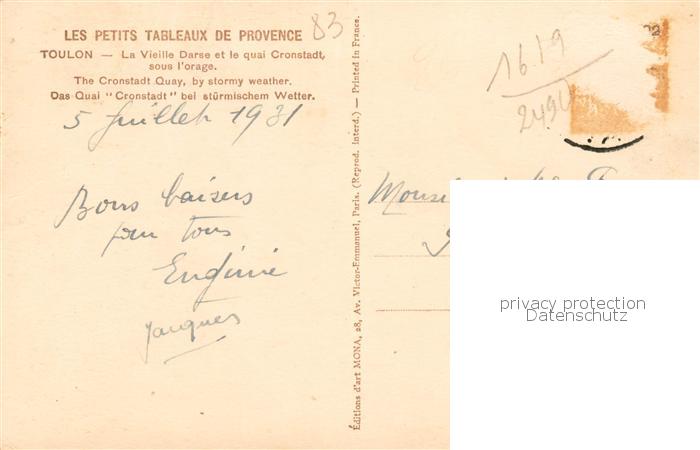 LES PETITS TABLEAUX DE PROVENCE
83
TOULON — La Vieille Darse et le quai Cronstadt,
sous l'orage.
The Cronstadt Quay, by stormy weather.
Das Quai "Cronstadt" bei stürmischem Wetter.
5 Juillet 1931
Bons baisers
pour tous
Eugénie
Jacques
Éditions d'art MONA, 28, Av. Victor-Emmanuel, Paris. (Reprod. interd.) — Printed in France.
16.19
privacy protection
Datenschutz